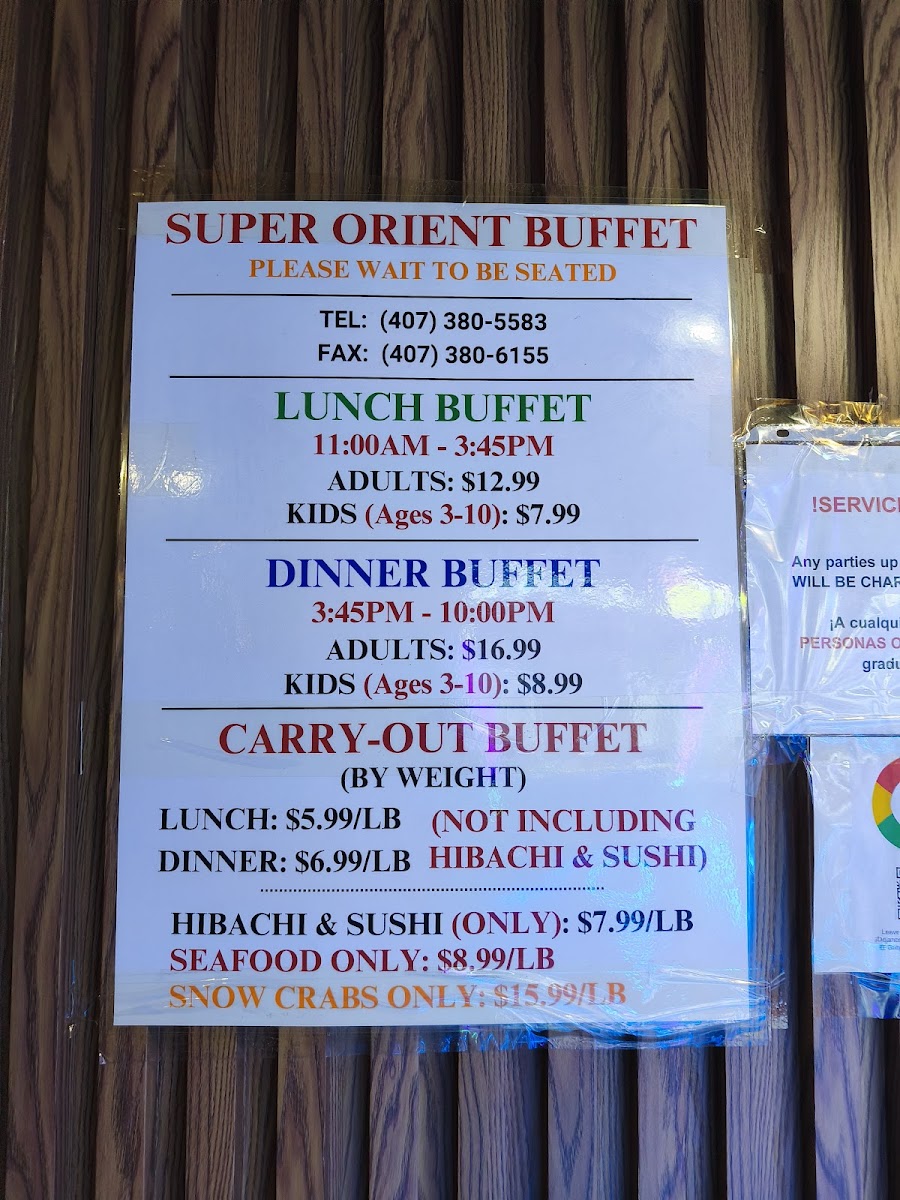 SUPER ORIENT BUFFET
PLEASE WAIT TO BE SEATED
TEL: (407) 380-5583
FAX: (407) 380-6155
LUNCH BUFFET
11:00AM - 3:45PM
ADULTS: $12.99
KIDS (Ages 3-10): $7.99
DINNER BUFFET
3:45PM - 10:00PM
ADULTS: $16.99
KIDS (Ages 3-10): $8.99
CARRY-OUT BUFFET
(BY WEIGHT)
LUNCH: $5.99/LB (NOT INCLUDING
DINNER: $6.99/LB HIBACHI & SUSHI)
HIBACHI & SUSHI (ONLY): $7.99/LB
SEAFOOD ONLY: $8.99/LB
SNOW CRABS ONLY: $15.99/LB
Any parties up
WILL BE
¡A
PERSONAS